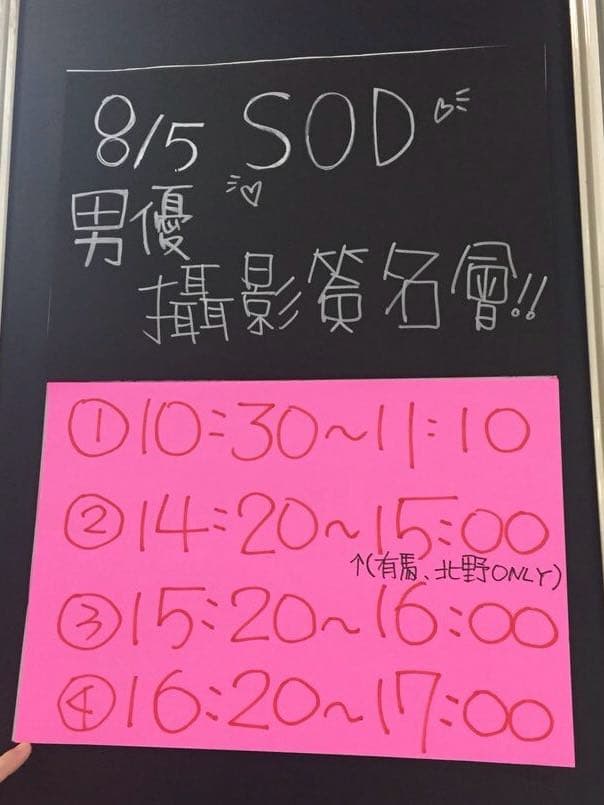 8/5 SOD
男優
攝影簽名會!!
①10:30~11:10
②14:20~15:00
↑(有馬、北野ONLY)
③15:20~16:00
④16:20~17:00